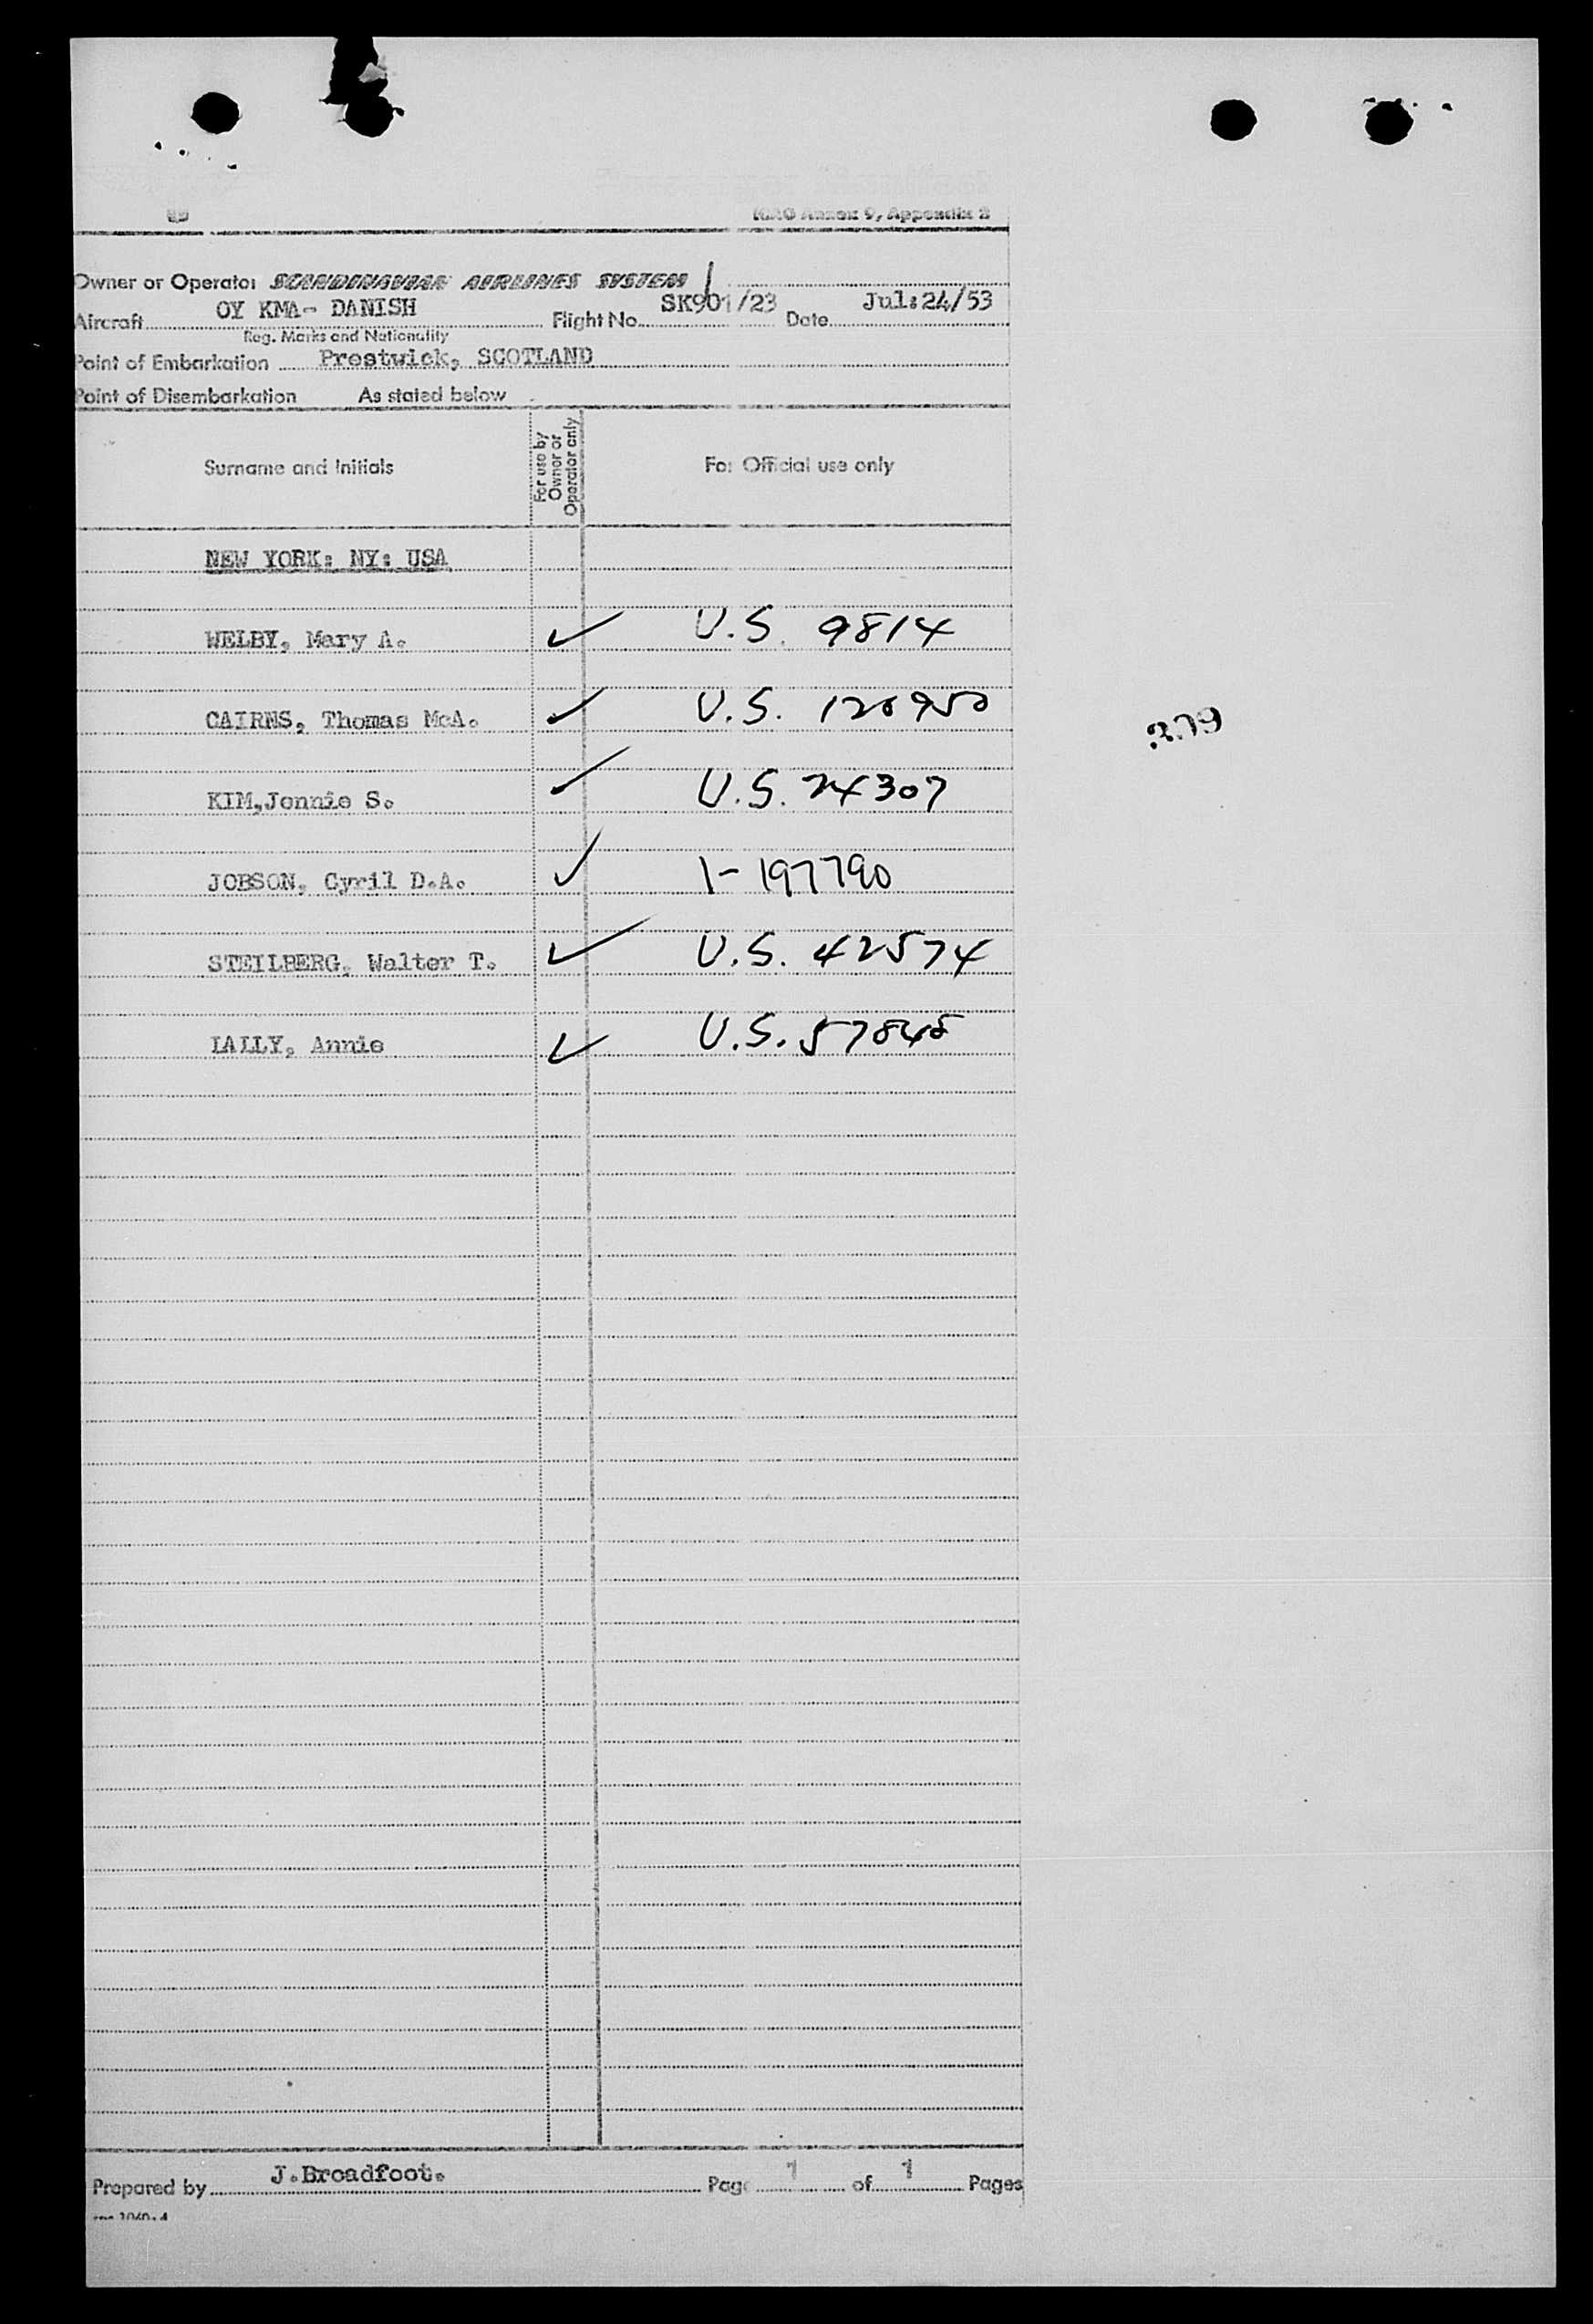 ICAO Annex 9, Appendix 2
Owner or Operator SCANDINAVIAN AIRLINES SYSTEM
Aircraft OY KMA- DANISH Flight No. SK901/23 Date Jul:24/53
Reg. Marks and Nationality
Point of Embarkation Prestwick, SCOTLAND
Point of Disembarkation As stated below
Surname and Initials For use by Owner or Operator only For Official use only
NEW YORK: NY: USA
WELBY, Mary A. ✓ U.S. 9814
CAIRNS, Thomas McA. ✓ U.S. 120950
KIM,Jennie S. ✓ U.S. 24307
JOBSON, Cyril D.A. ✓ 1-197790
STEILBERG, Walter T. ✓ U.S. 42574
LALLY, Annie ✓ U.S. 57848
Prepared by J.Broadfoot. Page 1 of 1 Pages